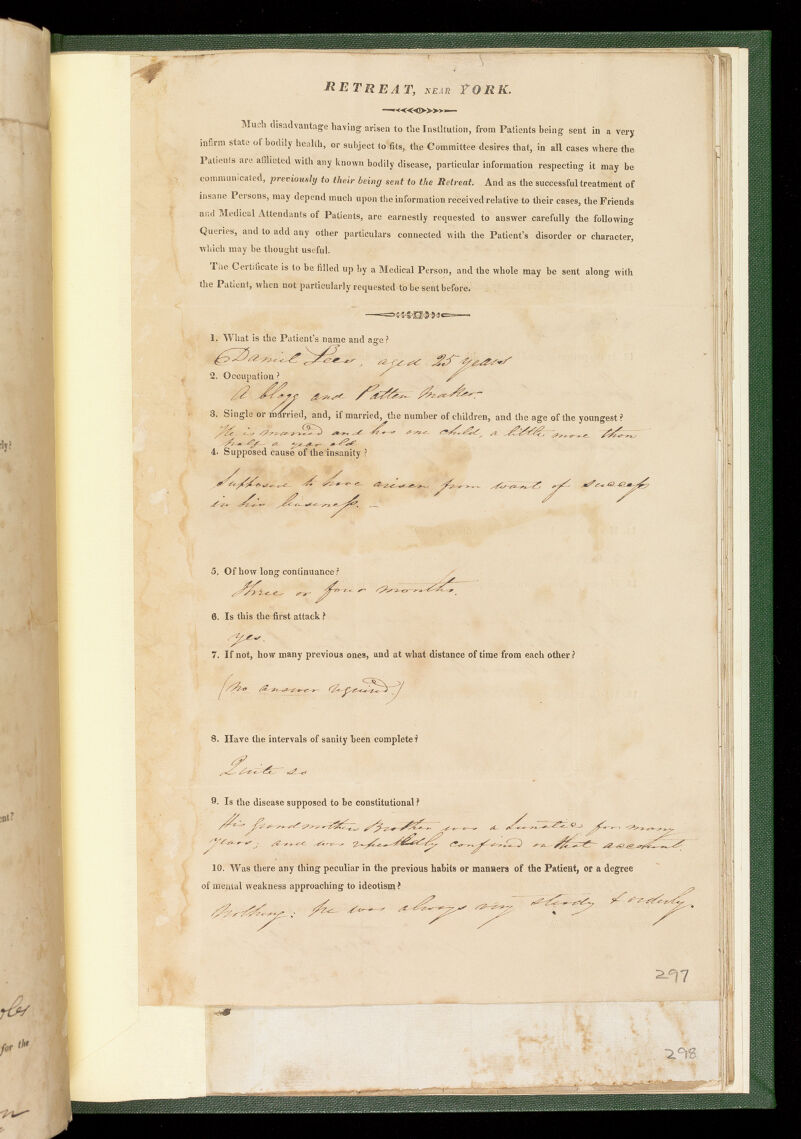 RETREAT, NEAR YORK.
Much disadvantage having arisen to the Institution, from Patients being sent in a very
infirm state of bodily health, or subject to fits, the Committee desires that, in all cases where the
Patients are afflicted with any known bodily disease, particular information respecting it may be
communicated, previously to their being sent to the Retreat. And as the successful treatment of
insane Persons, may depend much upon the information received relative to their cases, the Friends
and Medical Attendants of Patients, are earnestly requested to answer carefully the following
Queries, and to add any other particulars connected with the Patient's disorder or character,
which may be thought useful.
The Certificate is to be filled up by a Medical Person, and the whole may be sent along with
the Patient, when not particularly requested to be sent before.
1. What is the Patient's name and age?
Daniel Lees, aged 25 years
2. Occupation?
A Clogg and Patten Maker
3. Single or married, and, if married, the number of children, and the age of the youngest?
He is married and has one child, a little more than
half a year old
4. Supposed cause of the insanity?
Supposed to have arisen from want of success
in his business. -
5. Of how long continuance?
Three or four months.
6. Is this the first attack?
yes.
7. If not, how many previous ones, and at what distance of time from each other?
(no answer required.)
8. Have the intervals of sanity been complete?
Quite so
9. Is the disease supposed to be constitutional?
His Grandmothers Brother was a Lunatic for many
years; and was repeatedly confined on that account.
10. Was there any thing peculiar in the previous habits or manners of the Patient, or a degree
of mental weakness approaching to ideotism?
Nothing: he was always very steady & orderly.
297
298
ly?
ent?
for the